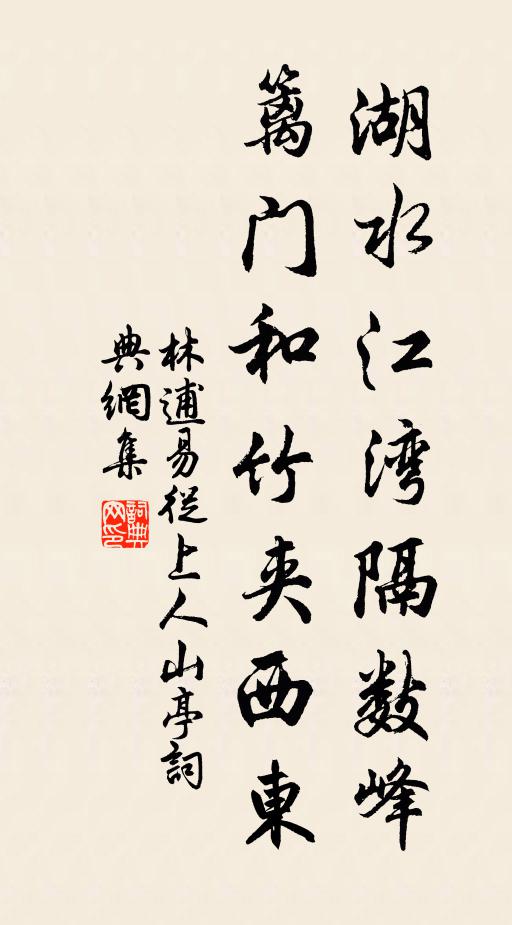 湖水江湾隔数峰
篱门和竹夹西東
林逋易從上人山亭詞
典網集
詞典
网印